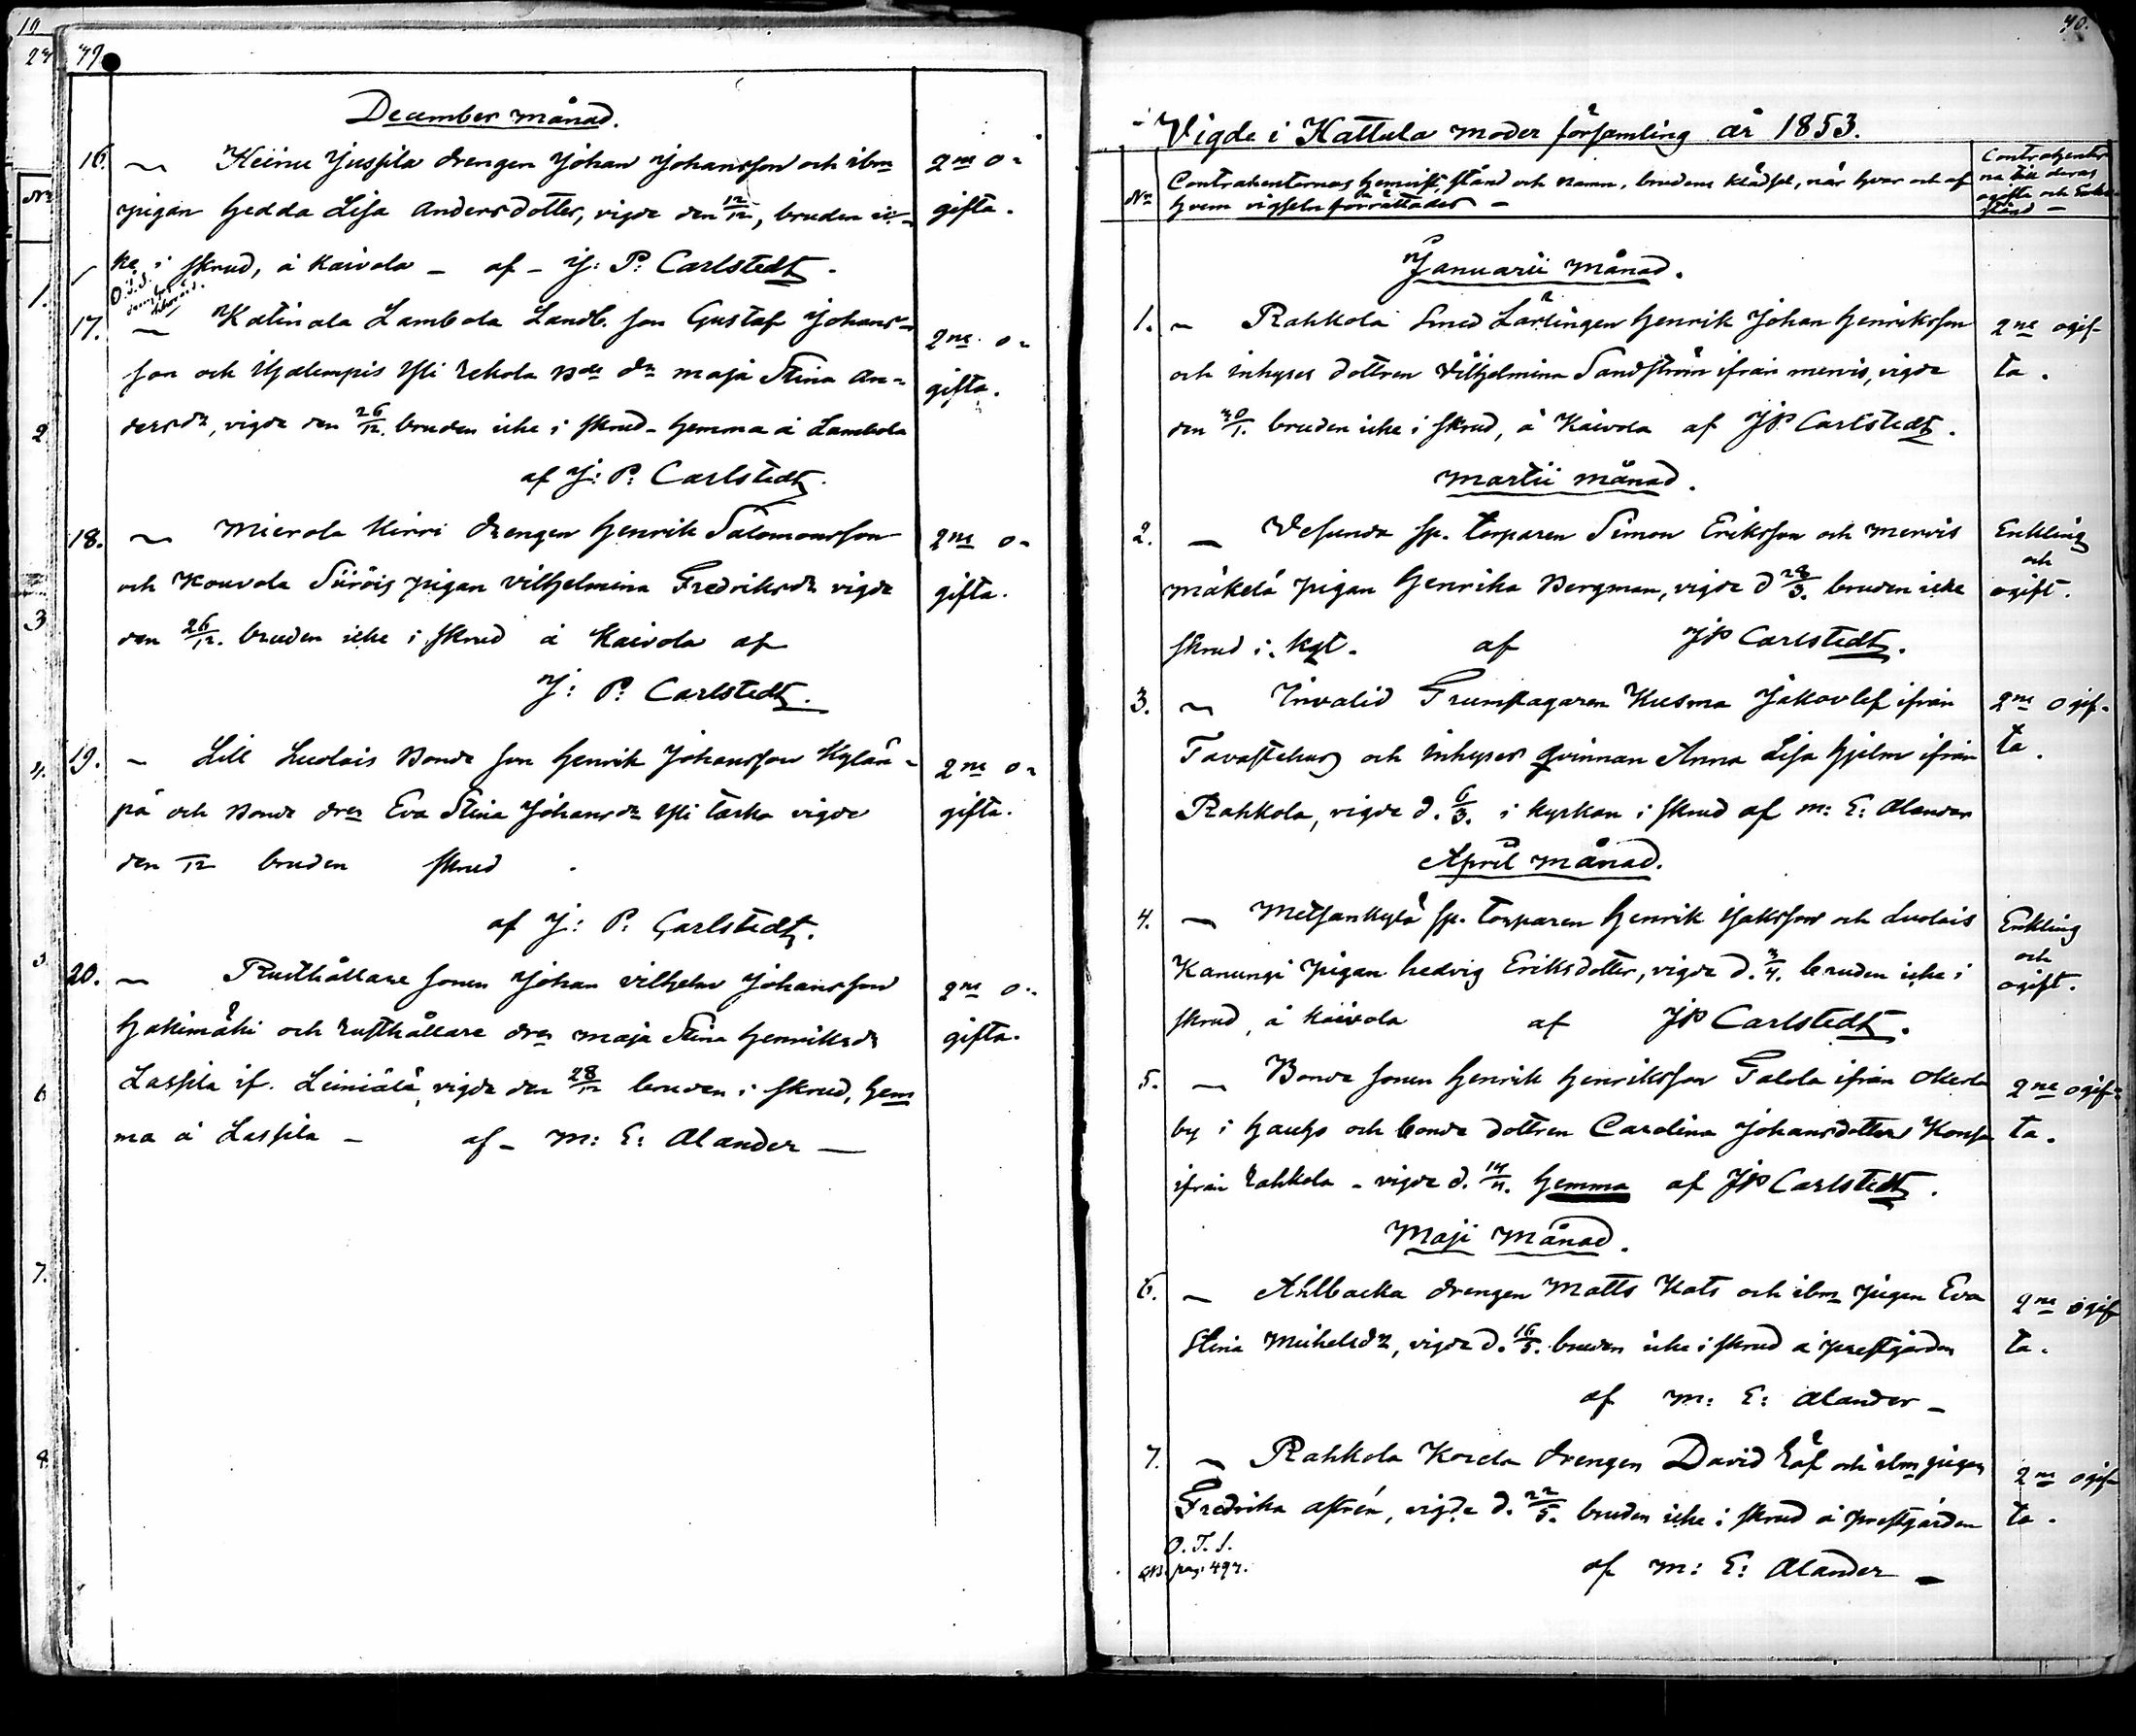 79
December månad.
16. Heinu Jussila drengen Johan Johansson och ibm 2ne o-
pigan Hedda Lisa Andersdotter, vigde den 12/12, bruden ic- gifta.
ke i skrud, å Kaivola - af - J: P: Carlstedt.
O.T.S.
17. Katinala Lambola Landb. son Gustaf Johans- 2ne o-
son och Hjelempis Yli Rekola Bde dr Maja Stina An- gifta.
dersdr, vigde den 26/12. bruden icke i skrud - hemma å Lambola
af J: P: Carlstedt.
18. Mierola Hirvi drengen Henrik Salomonsson 2ne o-
och Kouvola Siiröis pigan Vilhelmina Fredriksdr vigde gifta.
den 26/12. bruden icke i skrud å Kaivola af
J: P: Carlstedt.
19. Lill Luolais Bonde son Henrik Johansson Kylän- 2ne o-
pä och Bonde drn Eva Stina Johansdr Yli Carka vigde gifta.
den /12 bruden skrud
af J: P: Carlstedt.
20. Rusthållare sonen Johan Vilhelm Johansson 2ne o-
Hakimäki och rusthållare drn Maja Stina Henriksdr gifta.
Lassila if. Leiniälä, vigde den 28/12 bruden i skrud, hem
ma å Lassila - af - M: E: Alander
40.
Vigde i Hattula moder församling år 1853.
No Contrahenternas hemvist, stånd och namn, brudens klädsel, när hvar och af hvem vigseln förrättades - Contrahenter na till deras ogifta och Enke stånd -
Januarii månad.
1. Rahkola Smed Lärlingen Henrik Johan Henriksson 2ne ogif-
och inhyses dottren Vilhelmina Sandström ifrån Mervis, vigde ta.
den 30/1. bruden icke i skrud, å Kaivola af JP Carlstedt.
Martii månad.
2. Vesunda sp. torparen Simon Eriksson och Mervis Enkling
och
Mäkelä pigan Henrika Bergman, vigde d 28/3. bruden icke ogift.
skrud i. kgt. af JP Carlstedt.
3. Invalid Trumslagaren Kusma Jakovlef ifrån 2ne ogif-
Tavastehus och inhyses qvinnan Anna Lisa Hjelm ifrån ta.
Rahkola, vigde d. 6/3. i kyrkan i skrud af M: E: Alander
April månad.
4. Metsankylä sp. torparen Henrik Isaksson och Luolais Enkling
Kanungi pigan Hedvig Eriksdotter, vigde d. 3/4. bruden icke i och
ogift.
skrud, å Kaivola af JP Carlstedt.
5. Bonde sonen Henrik Henriksson Talola ifrån Okerla 2ne ogif-
by i Hauho och bonde dottren Carolina Johansdotter Konsa ta.
ifrån Rahkola - vigde d. 14/4. hemma af JP Carlstedt.
Maji Månad.
6. Ahlbacka drengen Matts Kats och ibm pigan Eva 2ne ogif
Stina Michelsdr, vigde d. 16/5. bruden icke i skrud å prestgården ta.
af M: E: Alander -
7. Rahkola Korela drengen David Räf och ibm pigan 2ne ogif-
Fredrika Astrén, vigde d. 22/5. bruden icke i skrud å prestgården ta.
O. T. S.
pag: 497. af M: E: Alander -